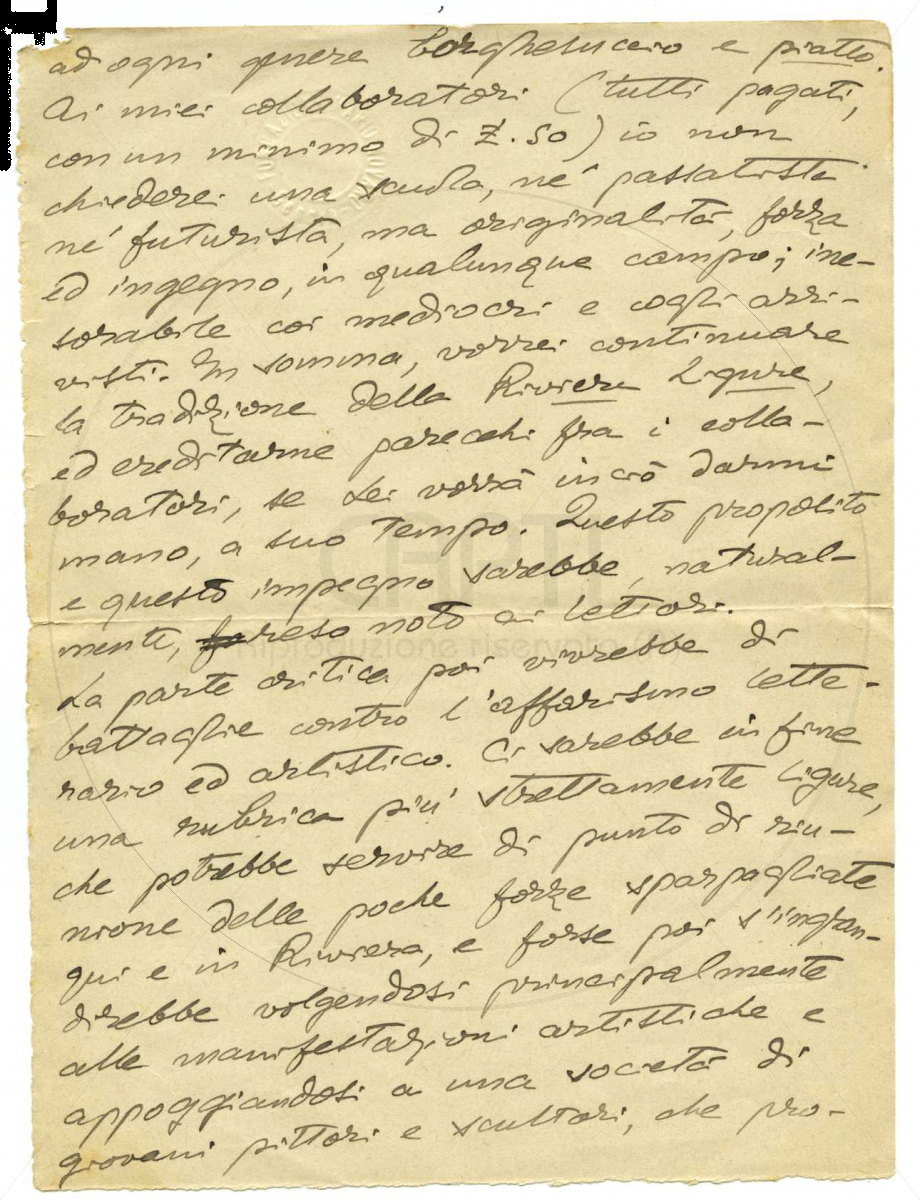 ad ogni genere borghesuccio e piatto.
Ai miei collaboratori (tutti pagati,
con un minimo di £. 50) io non
chiederei una scuola, né passatista
né futurista, ma originalità, forza
ed ingegno, in qualunque campo; ine-
sorabile coi mediocri e cogli arri-
visti. In somma, vorrei continuare
la tradizione della Riviera Ligure,
ed ereditarne parecchi fra i colla-
boratori, se Lei vorrà in ciò darmi
mano, a suo tempo. Questo proposito
e questo impegno sarebbe, natural-
mente, reso noto ai lettori.
La parte critica poi vivrebbe di
battaglie contro l'affarismo lette-
rario ed artistico. Ci sarebbe in fine
una rubrica piú strettamente ligure,
che potrebbe servire di punto di riu-
nione delle poche forze sparpagliate
qui e in Riviera, e forse poi s'ingran-
direbbe volgendosi principalmente
alle manifestazioni artistiche e
appoggiandosi a una società di
giovani pittori e scultori, che pro-
CAPTI
Riproduzione riservata